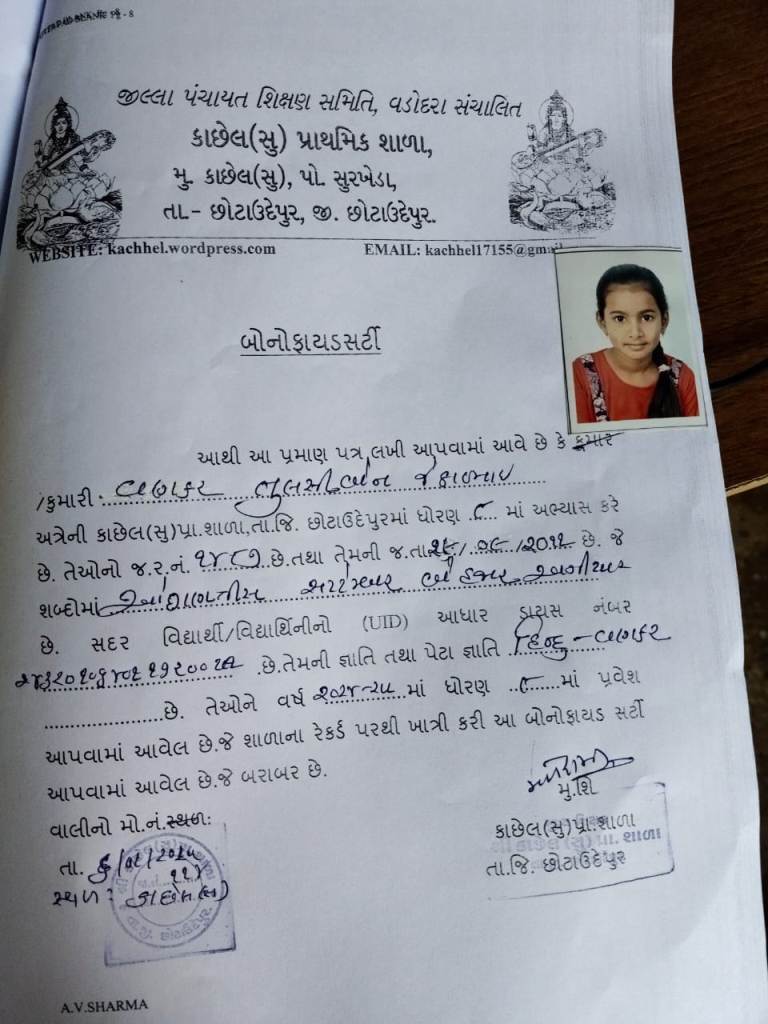 જીલ્લા પંચાયત શિક્ષણ સમિતિ, વડોદરા સંચાલિત
કાછેલ(સુ) પ્રાથમિક શાળા,
મુ. કાછેલ(સુ), પો. સુરખેડા,
તા.- છોટાઉદેપુર, જી. છોટાઉદેપુર.
WEBSITE: kachhel.wordpress.com EMAIL: kachhel17155@gmail
બોનોફાયડસર્ટી
આથી આ પ્રમાણ પત્ર લખી આપવામાં આવે છે કે કુમાર
/કુમારી. વણકર તુલસીબેન
અત્રેની કાછેલ(સુ)પ્રા.શાળા,તા.જિ. છોટાઉદેપુરમાં ધોરણ ૮ માં અભ્યાસ કરે
છે. તેઓનો જ.ર.નં. છે.તથા તેમની જ.તા. છે. જે
શબ્દોમાં ઓગણત્રીસ સપ્ટેમ્બર બે હજાર અગીયાર
છે. સદર વિદ્યાર્થી/વિદ્યાર્થિનીનો (UID) આધાર ડાયસ નંબર
છે.તેમની જ્ઞાતિ તથા પેટા જ્ઞાતિ હિન્દુ - વણકર
છે. તેઓને વર્ષ ૨૦૨૪-૨૫ માં ધોરણ ૮ માં પ્રવેશ
આપવામાં આવેલ છે.જે શાળાના રેકર્ડ પરથી ખાત્રી કરી આ બોનોફાયડ સર્ટી
આપવામાં આવેલ છે.જે બરાબર છે.
વાલીનો મો.નં.સ્થળ:
મુ.શિ
કાછેલ(સુ)પ્રા.શાળા
તા.જિ. છોટાઉદેપુર
તા.
સ્થળ : કાછેલ(સુ)
A.V.SHARMA